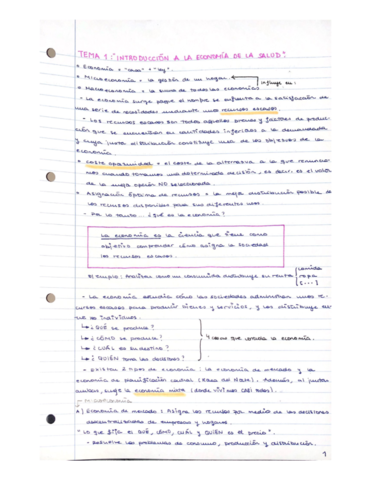 TEMA 1: "INTRODUCCIÓN A LA ECONOMÍA DE LA SALUD".
* Economía = "casa" + "ley".
* Microeconomía = la gestión de un hogar.
influye en:
* Macroeconomía = la suma de todas las economías
- La economía surge porque el hombre se enfrenta a la satisfacción de
una serie de necesidades mediante unos recursos escasos.
- Los recursos escasos son todos aquellos bienes y factores de produc-
ción que se encuentran en cantidades inferiores a la demandada
y cuya justa distribución constituye uno de los objetivos de la
economía.
* Coste oportunidad = el coste de la alternativa a la que renuncia-
mos cuando tomamos una determinada decisión, es decir, es el valor
de la mejor opción NO seleccionada.
* Asignación óptima de recursos = la mejor distribución posible de
los recursos disponibles para sus diferentes usos.
- Por lo tanto... ¿qué es la economía?
La economía es la ciencia que tiene como
objetivo comprender cómo asigna la sociedad
los recursos escasos.
Ejemplo: Analizar como un consumidor distribuye su renta
comida
ropa
[...]
- La economía estudia cómo las sociedades administran unos re-
cursos escasos para producir bienes y servicios, y los distribuye en-
tre los individuos.
↳ ¿QUÉ se produce?
↳ ¿CÓMO se produce?
4 cosas que estudia la economía.
↳ ¿CUÁL es su destino?
↳ ¿QUIÉN toma las decisiones?
- Existen 2 tipos de economía: la economía de mercado y la
economía de planificación central
Además, al juntar
ambas, surge la economía mixta (donde vivimos casi todos).
A) Economía de mercado: Asigna los recursos por medio de las decisiones
descentralizadas de empresas y hogares.
- Lo que fija el QUÉ, CÓMO, CUÁL y QUIÉN es el precio.
- Resuelve los problemas de consumo, producción y distribución.
1